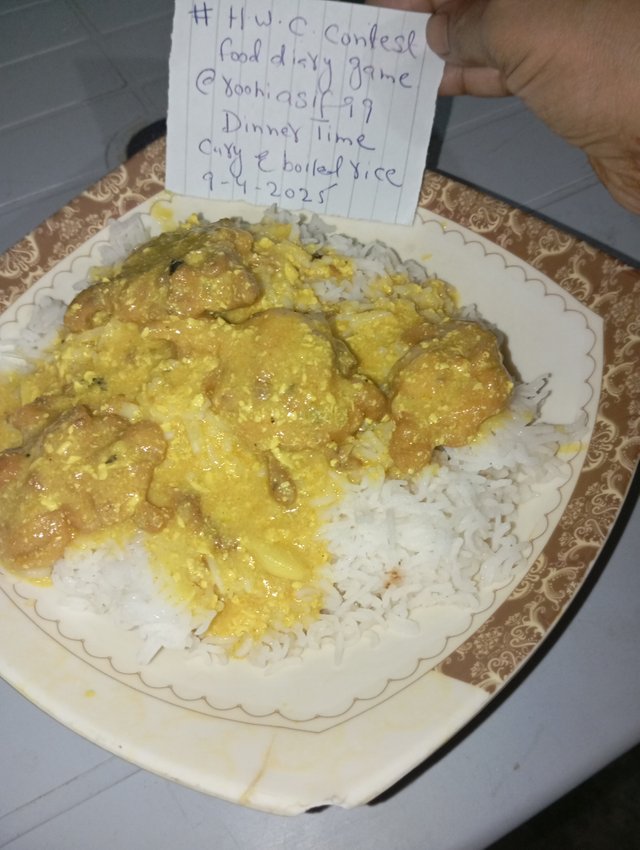 # H.W.C. Contest
food diary game
@roohiasif99
Dinner Time
Cury & boiled rice
9-4-2025